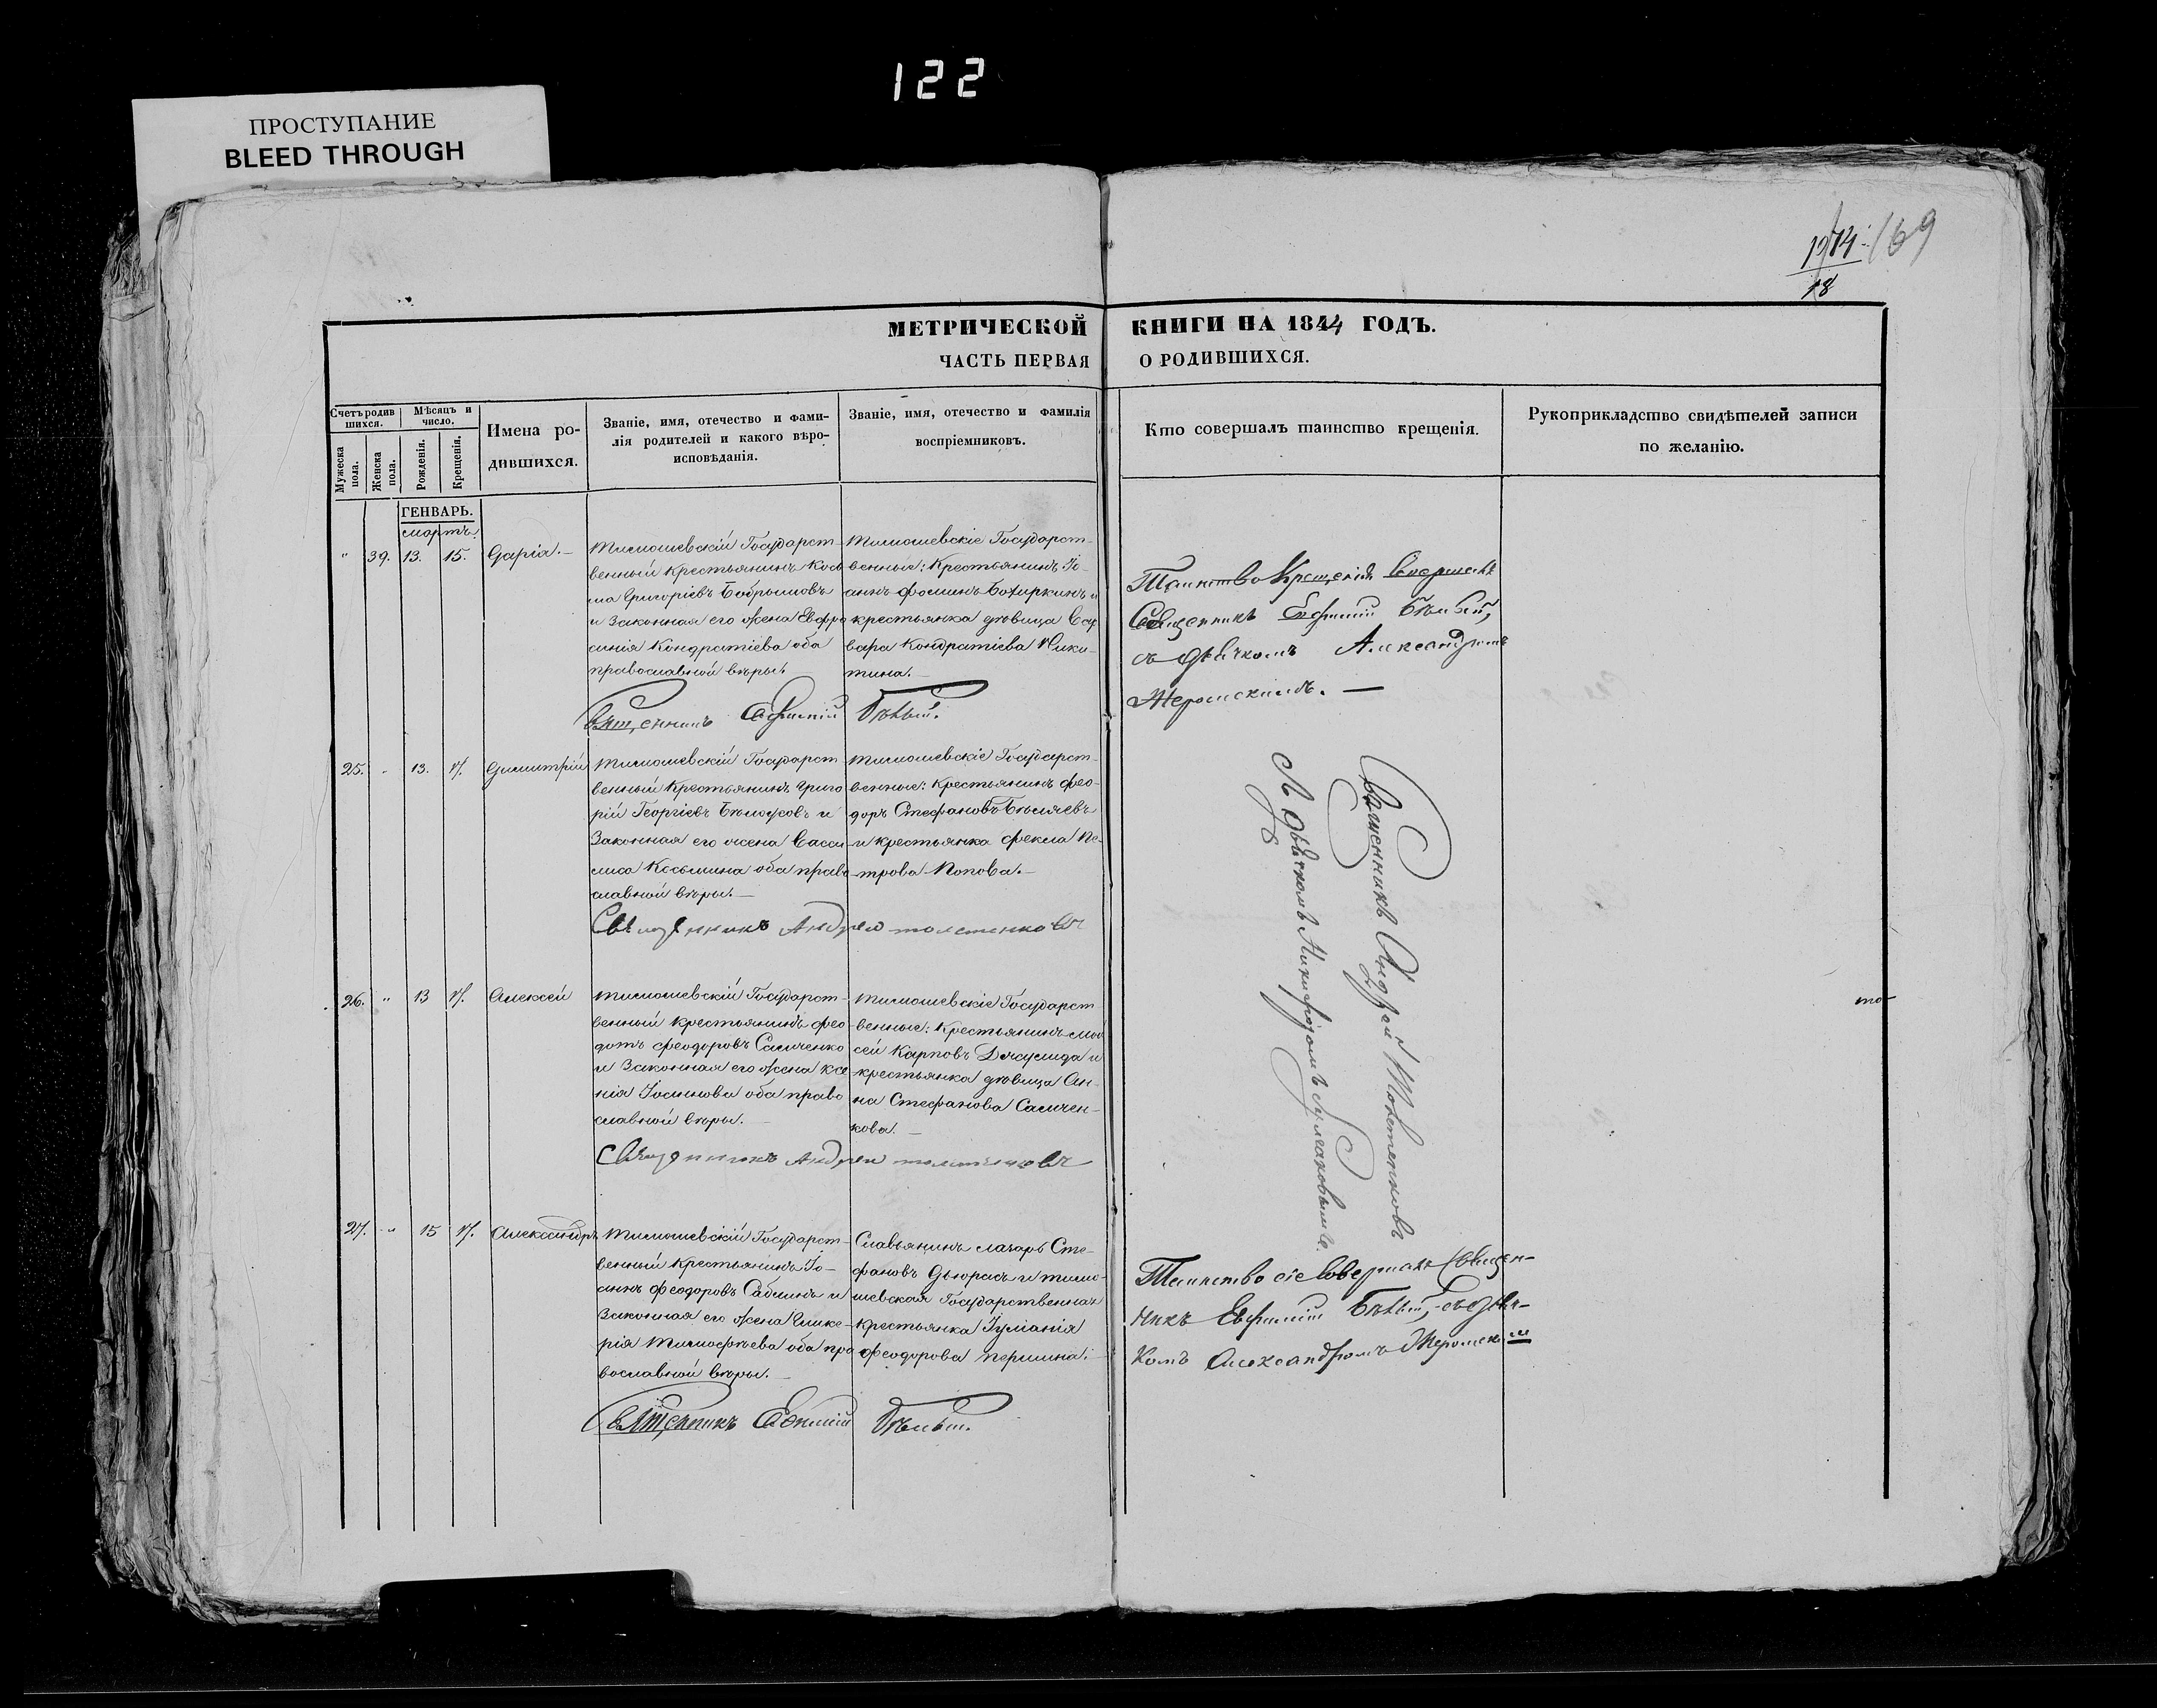 122
ПРОСТУПАНИЕ
BLEED THROUGH
169
18
МЕТРИЧЕСКОЙ КНИГИ НА 1844 ГОДЪ.
ЧАСТЬ ПЕРВАЯ О РОДИВШИХСЯ.
Счетъ родив
шихся.
Мужеска пола.
Женска пола.
Мѣсяцъ и
число.
Рожденія.
Крещенія.
Имена ро-
дившихся.
Званіе, имя, отечество и фами-
лія родителей и какого вѣро-
исповѣданія.
Званіе, имя, отечество и фамилія
воспріемниковъ.
Кто совершалъ таинство крещенія.
Рукоприкладство свидѣтелей записи
по желанію.
ГЕНВАРЬ.
мартъ
" 39. 13. 15. Дарія.—
Тимошевскій Государст-
венный Крестьянинъ Косм
ма Григоріевъ
и Законная его жена Евфро
синія Кондратіева оба
православной вѣры.
Тимошевскіе Государст-
венные: Крестьянинъ Іо-
аннъ Фоминъ и
крестьянка дѣвица Вар
вара Кондратіева Ники-
тина.—
Священникъ Ефимій Бѣлый.
Таинство Крещенія Совершалъ
Священникъ Ефимій Бѣлый,
съ дьячкомъ Александромъ
Жеромскимъ.—
25. " 13. Димитрій
Тимошевскій Государст
венный Крестьянинъ Григо
рій Георгіевъ Бѣлоусовъ и
Законная его жена Васси-
лиса Косьмина оба право
славной вѣры.—
Тимошевскіе Государст-
венные: Крестьянинъ Фео-
доръ Стефановъ Бѣляевъ
и крестьянка Фекла Пе-
трова Попова.—
Священникъ Андрей Толстенковъ
Священникъ Андрей Толстенковъ
дьячкомъ Никифоромъ
26. " 13 Алексей
Тимошевскій Государст-
венный крестьянинъ Фео-
дотъ Феодоровъ Самченко
и Законная его жена Ксе
нія Іосифова оба право
славной вѣры.—
Тимошевскіе Государст
венные: Крестьянинъ Мои
сей Карповъ и
крестьянка дѣвица Ан-
на Стефанова Самчен-
кова.—
Священникъ Андрей Толстенковъ
27. " 15 Александръ
Тимошевскій Государст-
венный Крестьянинъ Іо-
аннъ Феодоровъ и
Законная его жена Глике-
рія Тимофѣева оба пра
вославной вѣры.—
Славянинъ Лазарь Сте-
фановъ и тимо-
шевская Государственная
крестьянка Іуліанія
Феодорова Першина.—
Священникъ Ефимій Бѣлый.
Таинство сіе Совершалъ Священ-
никъ Евфимій Бѣлый, съ дьяч-
комъ Александромъ